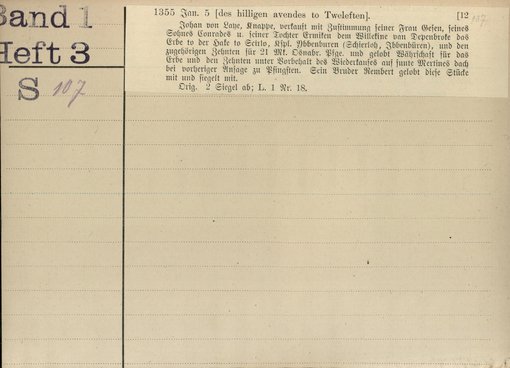 Band 1
Heft 3
S 107
1355 Jan. 5 [des hilligen avendes to Tweleften]. [12 107.
Johan von Laye, Knappe, verkauft mit Zustimmung seiner Frau Gesen, seines
Sohnes Conrades u. seiner Tochter Ermiken dem Willekine van Dependroke das
Erbe to der Hake to Scirlo, Kspl. Ybbenburen (Schierloh, Ibbenbüren), und den
zugehörigen Zehnten für 21 Mk. Osnabr. Pfge. und gelobt Währschaft für das
Erbe und den Zehnten unter Vorbehalt des Wiederkaufes auf sunte Mertines dach
bei vorheriger Ansage zu Pfingsten. Sein Bruder Rembert gelobt diese Stücke
mit und siegelt mit.
Orig. 2 Siegel ab; L. 1 Nr. 18.